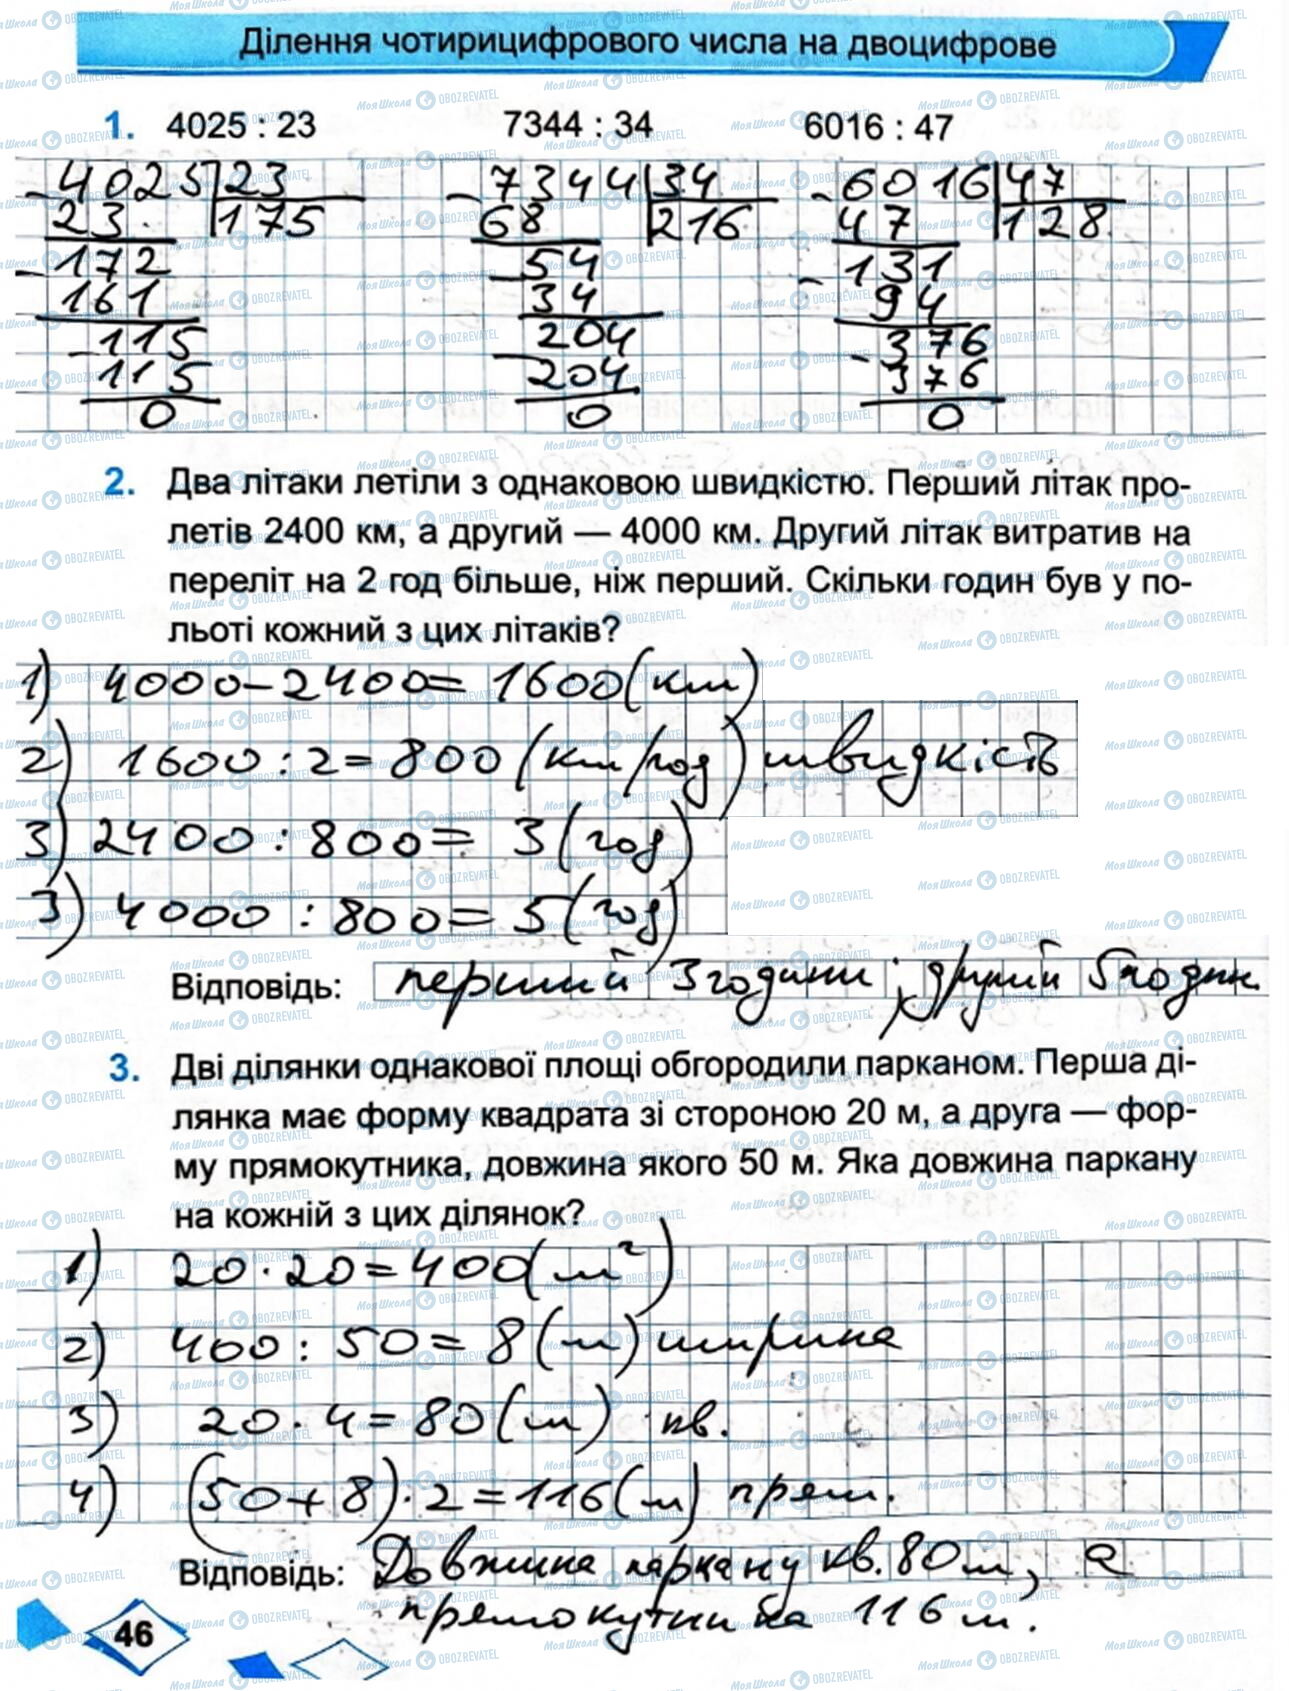 Ділення чотирицифрового числа на двоцифрове
1. 4025 : 23 7344 : 34 6016 : 47
4025 23 - 7344 34 - 6016 47
- 23 175 68 216 47 128
- 172 - 54 - 131
161 34 94
- 115 - 204 - 376
115 204 376
0 0 0
2. Два літаки летіли з однаковою швидкістю. Перший літак про-
летів 2400 км, а другий — 4000 км. Другий літак витратив на
переліт на 2 год більше, ніж перший. Скільки годин був у по-
льоті кожний з цих літаків?
1) 4000-2400=1600(км)
2) 1600:2=800(км/год) швидкість
3) 2400:800=3(год)
3) 4000:800=5(год)
Відповідь: перший 3 години; другий 5 годин.
3. Дві ділянки однакової площі обгородили парканом. Перша ді-
лянка має форму квадрата зі стороною 20 м, а друга — фор-
му прямокутника, довжина якого 50 м. Яка довжина паркану
на кожній з цих ділянок?
1) 20·20=400(м²)
2) 400:50=8(м) ширина
3) 20·4=80(м) кв.
4) (50+8)·2=116(м) прям.
Відповідь: Довжина паркану кв. 80 м, а
прямокутника 116 м.
46
МояШкола OBOZREVATEL